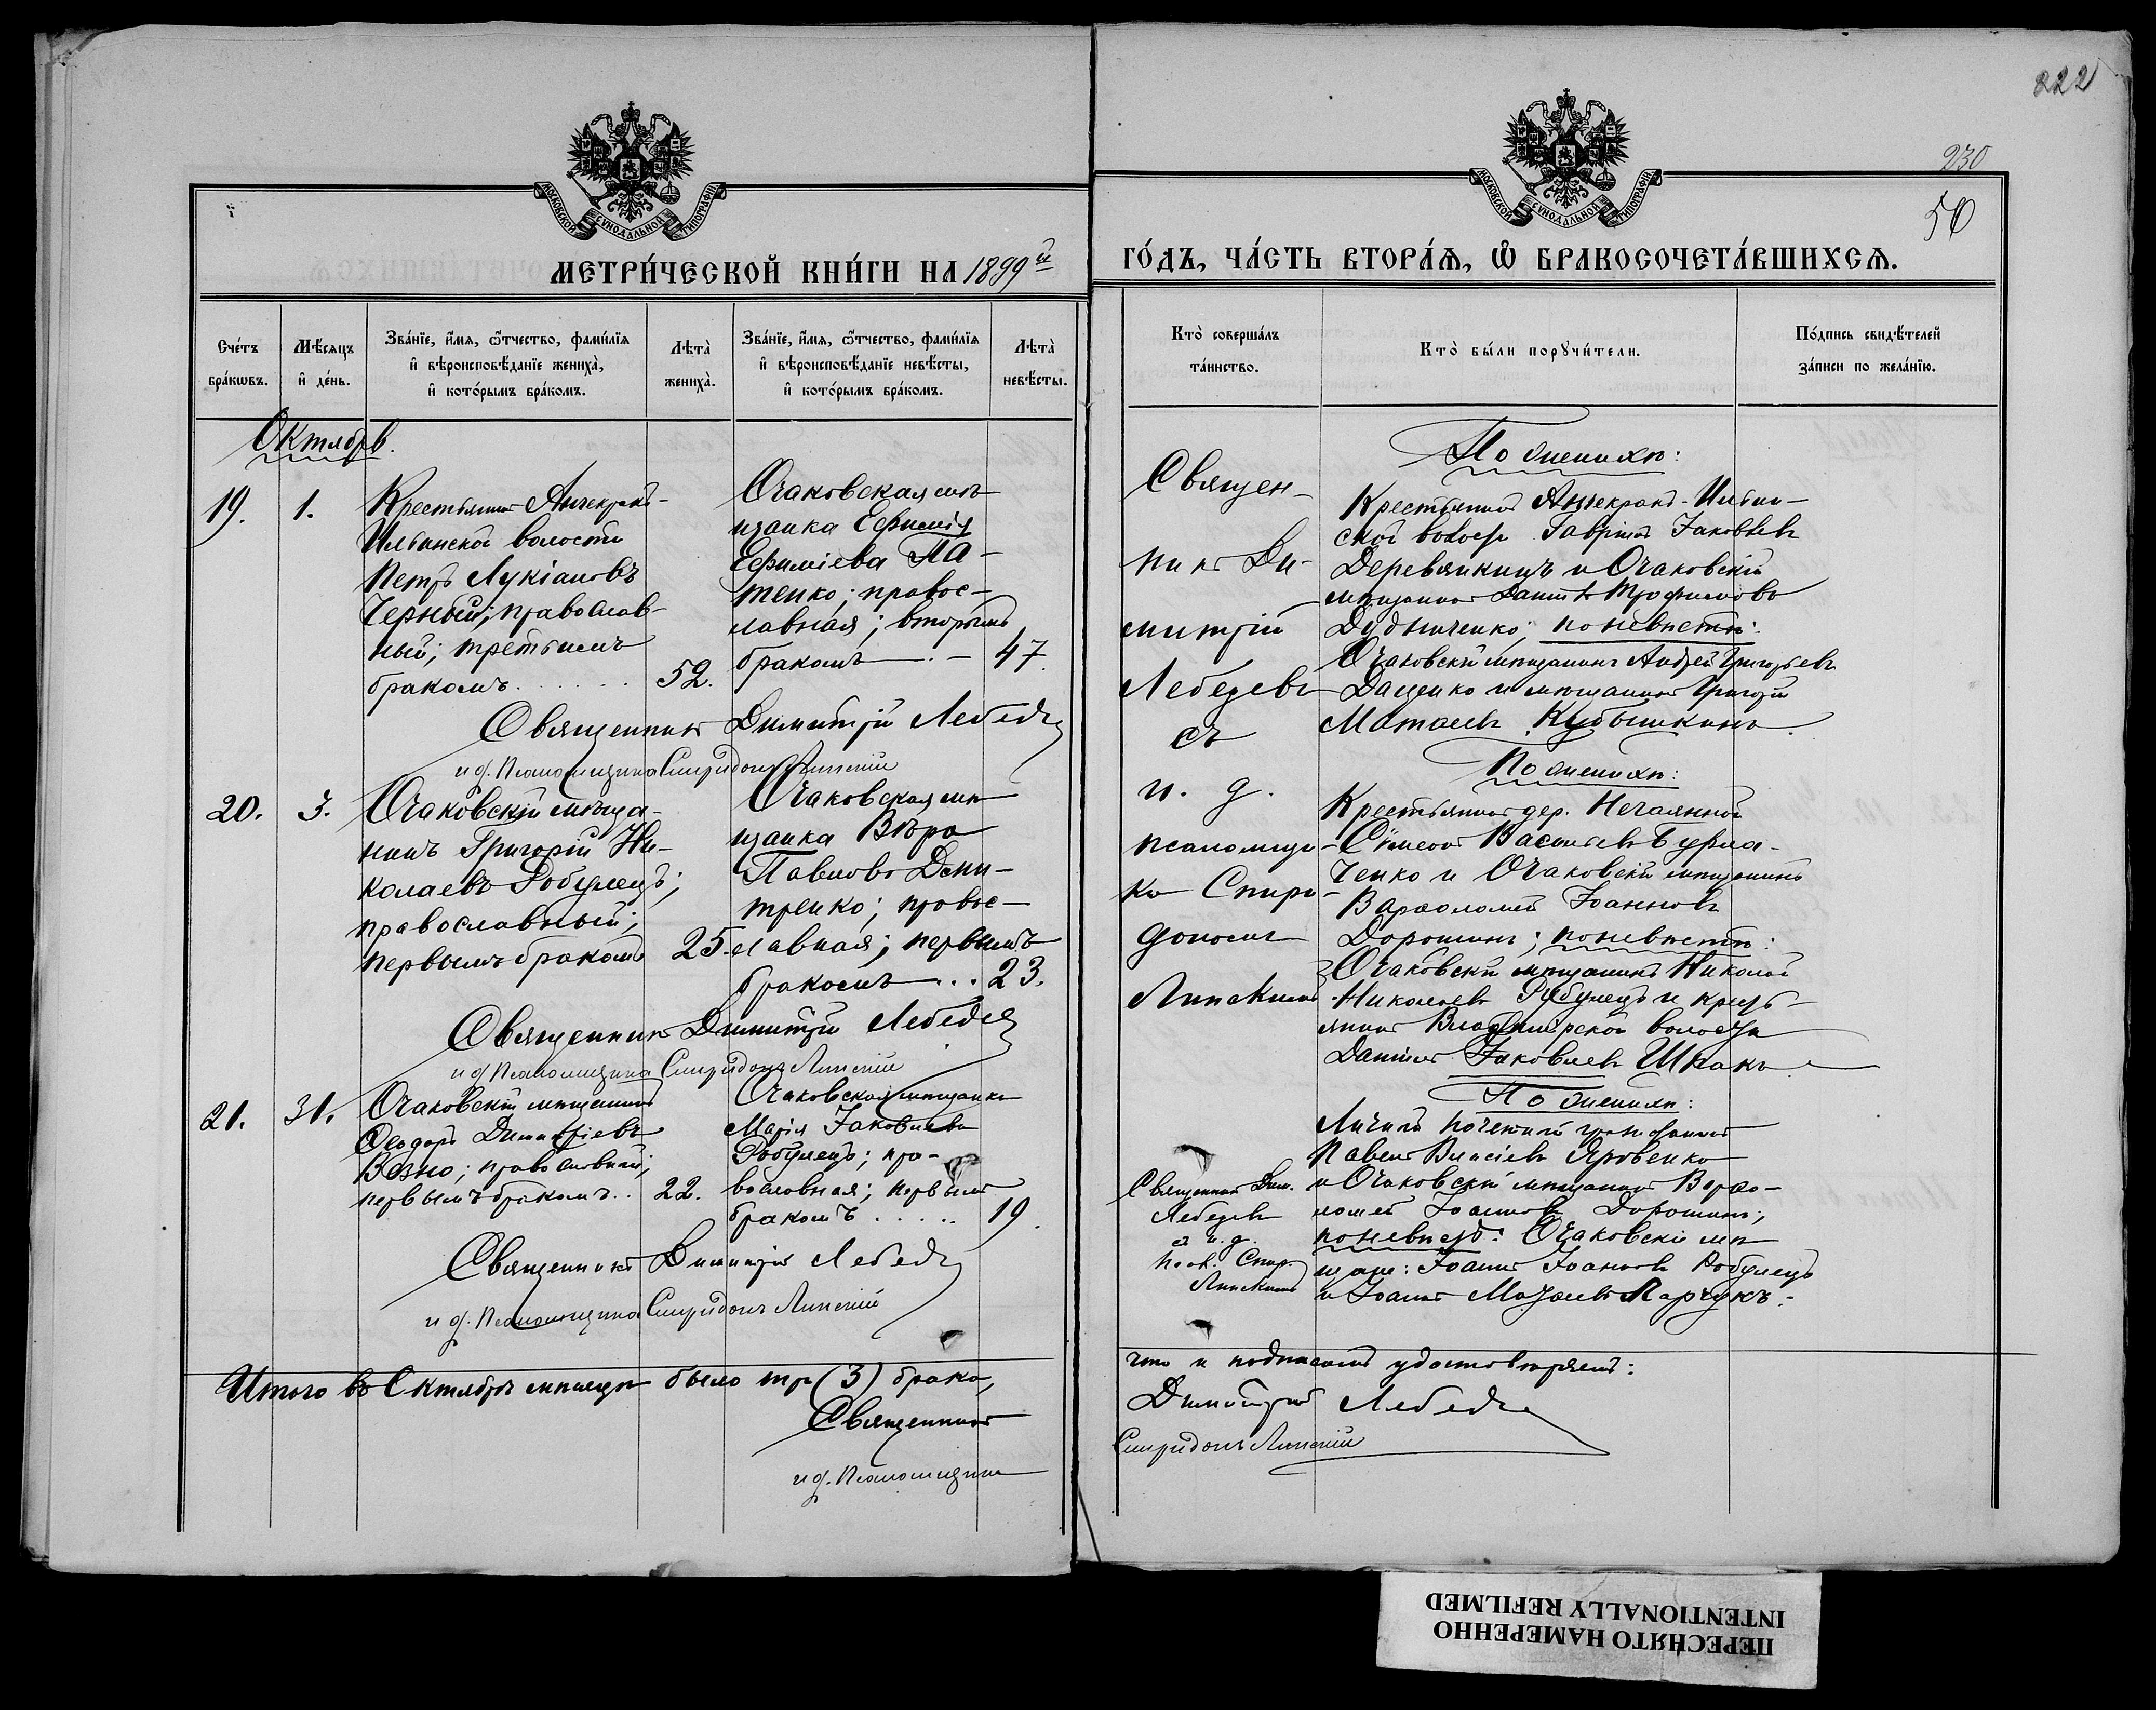 222
230
50
МОСКОВСКОЙ СУНОДАЛЬНОЙ ТИПОГРАФІИ
МЕТРИ́ЧЕСКОЙ КНИ́ГИ НА 1899й
Сче́тъ бра́кѡвъ.
Мѣ́сяцъ и҆ де́нь.
Зва́нїе, и҆́мя, ѻ҆́тчество, фами́лїя и҆ вѣроисповѣ́данїе жениха̀, и҆ кото́рымъ бра́комъ.
Лѣта̀ жениха̀.
Зва́нїе, и҆́мя, ѻ҆́тчество, фами́лїя и҆ вѣроисповѣ́данїе невѣ́сты, и҆ кото́рымъ бра́комъ.
Лѣта̀ невѣ́сты.
Октябрь.
19.
1.
Крестьянинъ
волости
Петръ Лукіановъ
Черный; православ-
ный; третьимъ
бракомъ
52.
Очаковская мѣ-
щанка Ефимія
Ефиміева Па-
тенко; правос-
лавная; вторымъ
бракомъ
47.
Священникъ Димитрій Лебедевъ
и д. Псаломщика Спиридонъ Липскій
20.
3.
Очаковскій мѣща-
нинъ Григорій Ни-
колаевъ Робулецъ;
православный;
первымъ бракомъ
25.
Очаковская мѣ-
щанка Вѣра
Павлова Дми-
тренко; правос-
лавная; первымъ
бракомъ ... 23.
Священникъ Димитрій Лебедевъ
и д Псаломщика Спиридонъ Липскій
21.
31.
Очаковскій мѣщанинъ
Ѳеодоръ Димитріевъ
Возно; православный;
первымъ бракомъ..
22.
Очаковская мѣщанка
Марія Іаковлева
Робулецъ; пра-
вославная; первымъ
бракомъ .....
19.
Священникъ Димитрій Лебедевъ
и д. Псаломщика Спиридонъ Липскій
Итого въ Октябрѣ мѣсяцѣ было три (3) брака,
Священникъ
и д. Псаломщика
МОСКОВСКОЙ СУНОДАЛЬНОЙ ТИПОГРАФІИ
ГО́ДЪ, ЧА́СТЬ ВТОРА́Я, Ѡ҆ БРАКОСОЧЕТА́ВШИХСЯ.
Кто̀ соверша́лъ та́инство.
Кто̀ бы́ли порꙋчи́тели.
По́дпись свидѣ́телей за́писи по жела́нїю.
Священ-
никъ Ди-
митрій
Лебедевъ
съ
и. д.
псаломщи-
ка Спири-
дономъ
Липскимъ
По женихѣ:
Крестьянинъ
ской волости Гавріилъ Іаковлевъ
Деревянкинъ и Очаковскій
мѣщанинъ Даніилъ Трофимовъ
Дудниченко; по невѣстѣ:
Очаковскій мѣщанинъ Андрей Григорьевъ
Даценко и мѣщанинъ Григорій
Кубышкинъ.
По женихѣ:
Крестьянинъ дер. Нечаянной
Сѵмеонъ Васильевъ Бурла-
ченко и Очаковскій мѣщанинъ
Варѳоломей Іоанновъ
Дорошинъ; по невѣстѣ:
Очаковскій мѣщанинъ Николай
Николаевъ Робулецъ и кресть-
янинъ Владимірской волости
Даніилъ Іаковлевъ Шпакъ
По женихѣ:
Личный почетный гражданинъ
Павелъ Власіевъ Яровенко
и Очаковскій мѣщанинъ Варѳо-
ломей Іоанновъ Дорошинъ;
по невѣстѣ: Очаковскіе мѣ-
щане: Іоаннъ Іоанновъ Робулецъ
и Іоаннъ Марчукъ.
Священникъ Дим.
Лебедевъ
съ и. д.
псал. Спир.
Липскимъ
что и подписомъ удостовѣряемъ:
Димитрій Лебедевъ
Спиридонъ Липскій
ПЕРЕСНЯТО НАМЕРЕННО
INTENTIONALLY REFILMED